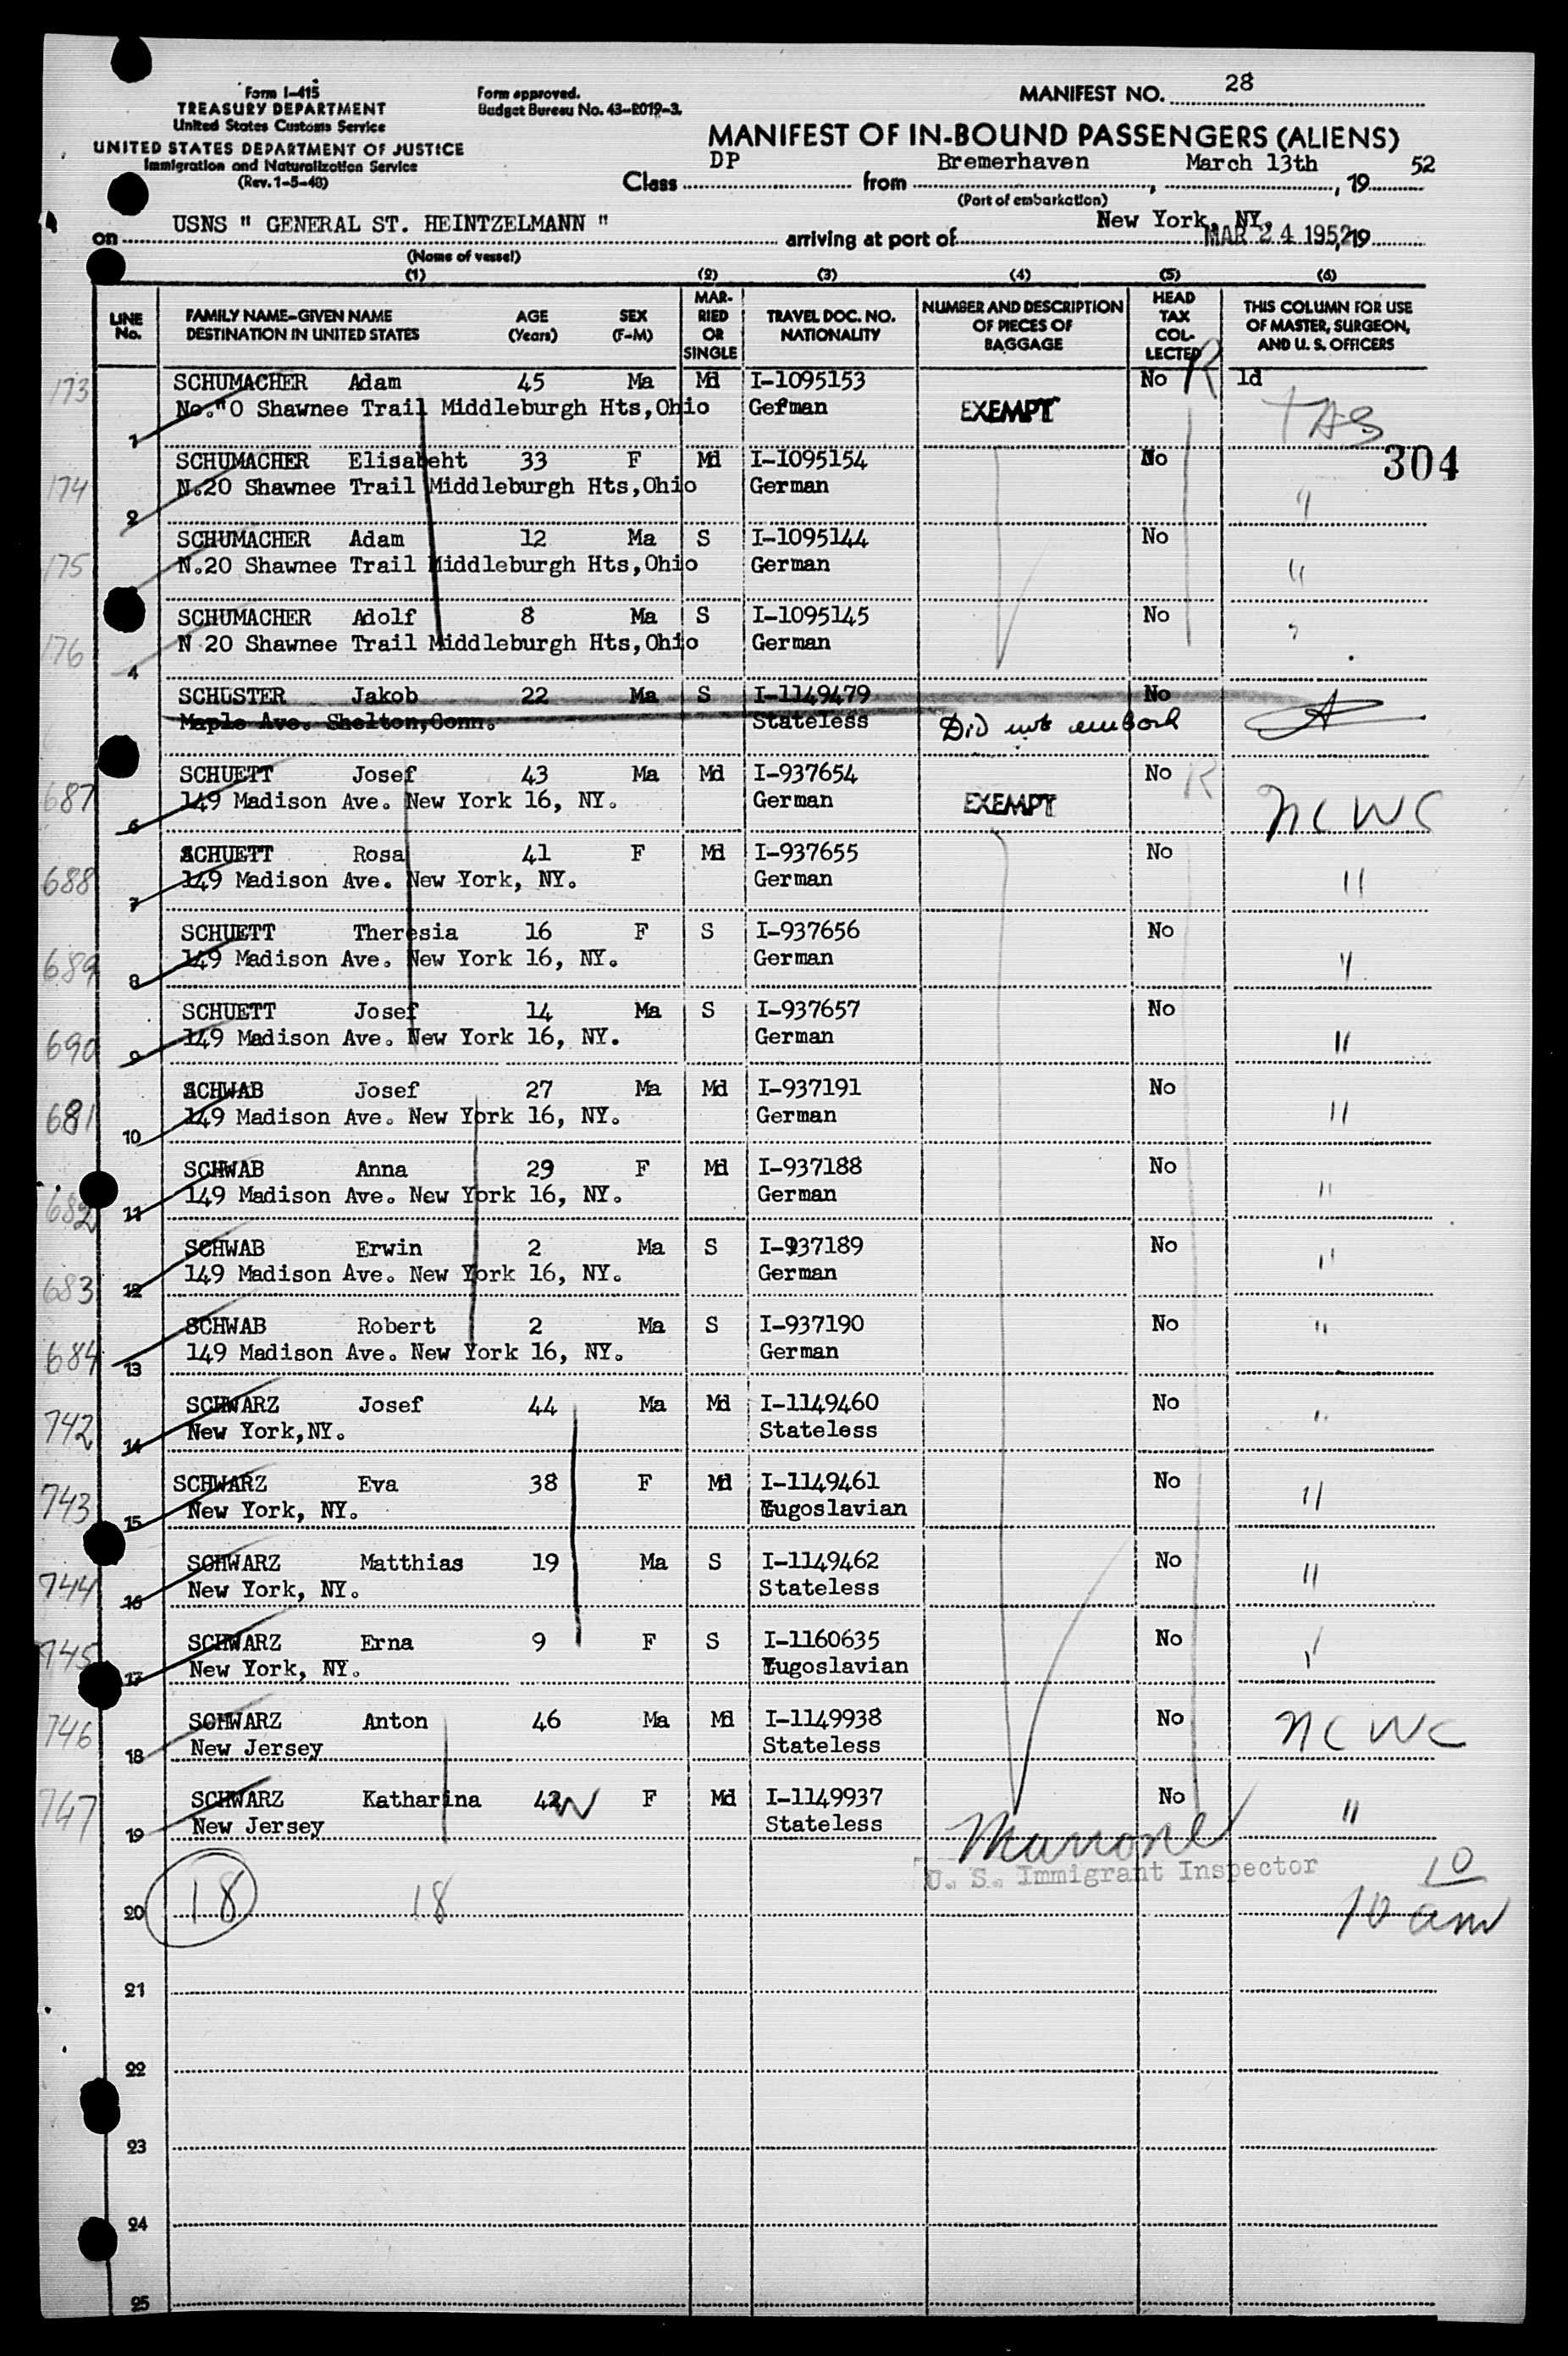 Form I-415
TREASURY DEPARTMENT
United States Customs Service
UNITED STATES DEPARTMENT OF JUSTICE
Immigration and Naturalization Service
(Rev. 1-5-48)
Form approved.
Budget Bureau No. 43-R019-3.
MANIFEST NO. 28
MANIFEST OF IN-BOUND PASSENGERS (ALIENS)
Class DP from Bremerhaven, March 13th, 19 52
(Port of embarkation)
on USNS " GENERAL ST. HEINTZELMANN " arriving at port of New York, NY, MAR 24 1952, 19
(Name of vessel)
(1) (2) (3) (4) (5) (6)
LINE No.
FAMILY NAME-GIVEN NAME DESTINATION IN UNITED STATES
AGE (Years)
SEX (F-M)
MARRIED OR SINGLE
TRAVEL DOC. NO. NATIONALITY
NUMBER AND DESCRIPTION OF PIECES OF BAGGAGE
HEAD TAX COLLECTED
THIS COLUMN FOR USE OF MASTER, SURGEON, AND U. S. OFFICERS
173 SCHUMACHER Adam 45 Ma Md I-1095153 No R 1d
1 No."0 Shawnee Trail Middleburgh Hts,Ohio German EXEMPT
304
174 SCHUMACHER Elisabeht 33 F Md I-1095154 No
2 N.20 Shawnee Trail Middleburgh Hts,Ohio German "
175 SCHUMACHER Adam 12 Ma S I-1095144 No
N.20 Shawnee Trail Middleburgh Hts,Ohio German "
176 SCHUMACHER Adolf 8 Ma S I-1095145 No
4 N 20 Shawnee Trail Middleburgh Hts,Ohio German
SCHUSTER Jakob 22 Ma S I-1149479 No
Maple Ave. Shelton,Conn. Stateless Did not embark
687 SCHUETT Josef 43 Ma Md I-937654 No R
6 149 Madison Ave. New York 16, NY. German EXEMPT NCWC
688 SCHUETT Rosa 41 F Md I-937655 No
7 149 Madison Ave. New York, NY. German "
689 SCHUETT Theresia 16 F S I-937656 No
8 149 Madison Ave. New York 16, NY. German "
690 SCHUETT Josef 14 Ma S I-937657 No
9 149 Madison Ave. New York 16, NY. German "
681 SCHWAB Josef 27 Ma Md I-937191 No
10 149 Madison Ave. New York 16, NY. German "
682 SCHWAB Anna 29 F Md I-937188 No
11 149 Madison Ave. New York 16, NY. German "
683 SCHWAB Erwin 2 Ma S I-937189 No
12 149 Madison Ave. New York 16, NY. German "
684 SCHWAB Robert 2 Ma S I-937190 No
13 149 Madison Ave. New York 16, NY. German "
742 SCHWARZ Josef 44 Ma Md I-1149460 No
14 New York,NY. Stateless "
743 SCHWARZ Eva 38 F Md I-1149461 No
15 New York, NY. Yugoslavian "
744 SCHWARZ Matthias 19 Ma S I-1149462 No
16 New York, NY. Stateless "
745 SCHWARZ Erna 9 F S I-1160635 No
17 New York, NY. Yugoslavian "
746 SCHWARZ Anton 46 Ma Md I-1149938 No NCWC
18 New Jersey Stateless
747 SCHWARZ Katharina 42 F Md I-1149937 No
19 New Jersey Stateless "
Marrone
U. S. Immigrant Inspector
10
20 18 18 10 am
21
22
23
24
25